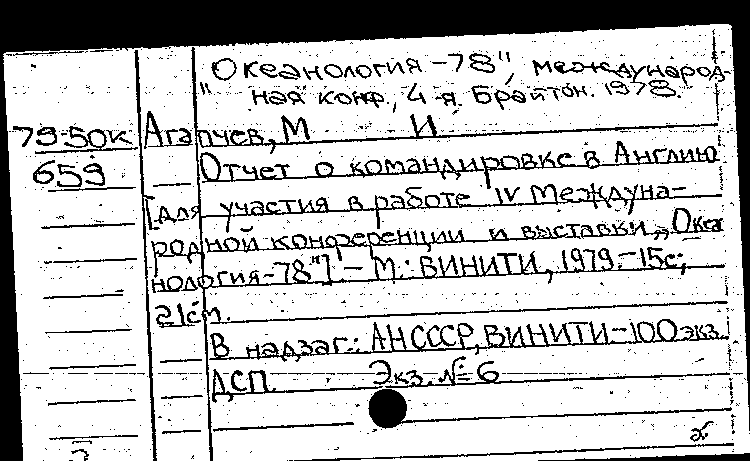 "Океанология-78", международ-
ная конф., 4-я. Брайтон. 1978.
79-50к Агапчев, М И
659 Отчет о командировке в Англию
[для участия в работе IV Междуна-
родной конференции и выставки „Океа
нология-78"]. - М.: ВИНИТИ, 1979.-15с;
21см.
В надзаг.: АН СССР, ВИНИТИ-100экз.
ДСП. Экз. № 6